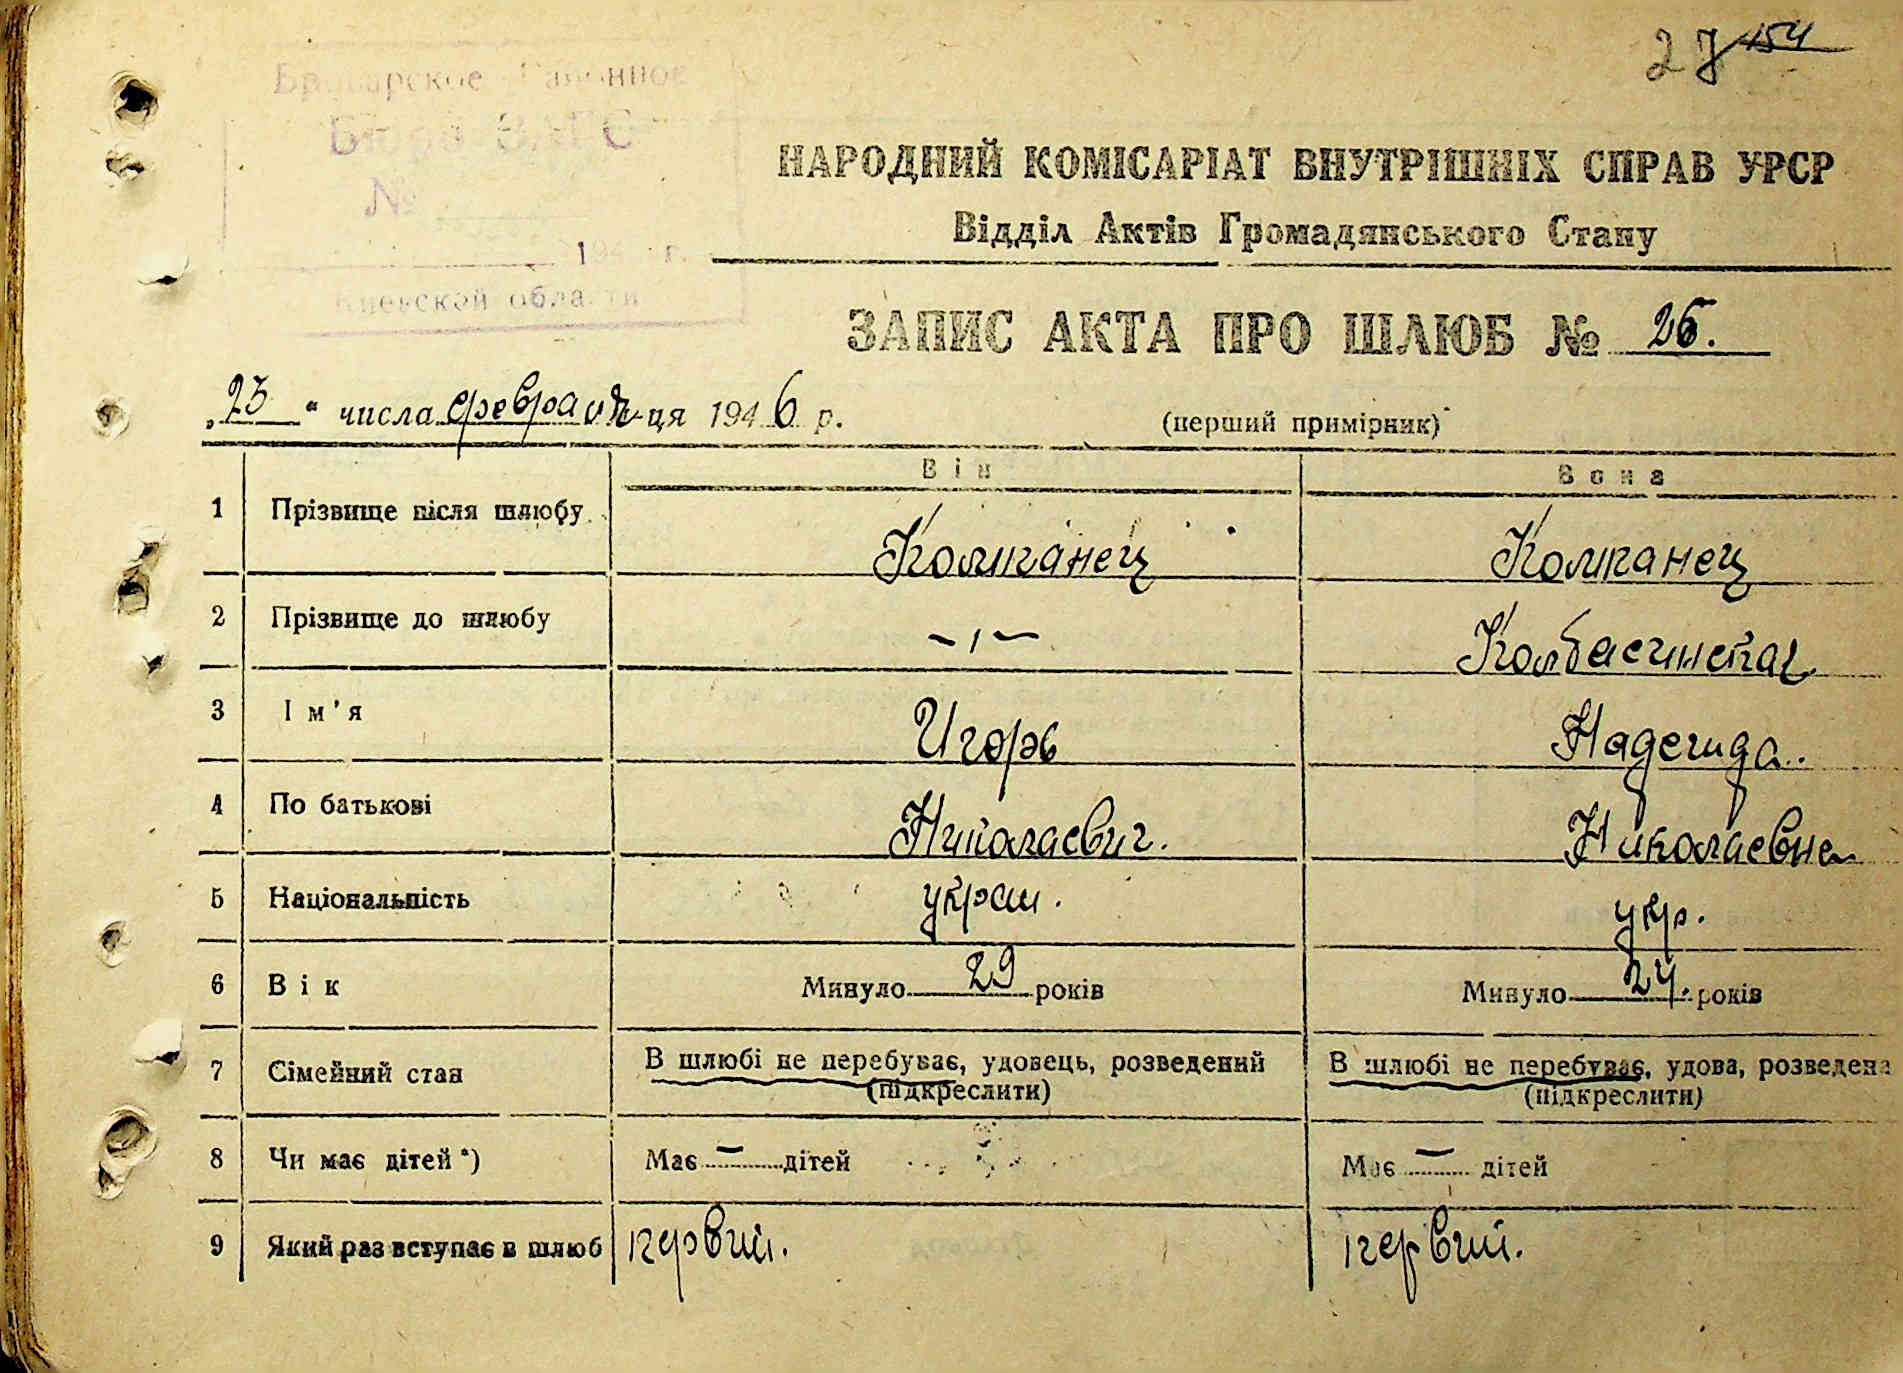 27 154
Броварское Районное
Бюро ЗАГС
№
194 г.
Киевской области
НАРОДНИЙ КОМІСАРІАТ ВНУТРІШНІХ СПРАВ УРСР
Відділ Актів Громадянського Стану
ЗАПИС АКТА ПРО ШЛЮБ № 26.
"23" числа февраля-ця 1946 р.
(перший примірник)
Він Вона
1 Прізвище після шлюбу Колпанец Колпанец
2 Прізвище до шлюбу -"- Колбасинская
3 Ім'я Игорь Надежда.
4 По батькові Николаевич. Николаевна
5 Національність украи. укр.
6 Вік Минуло 29 років Минуло 24. років
7 Сімейний стан В шлюбі не перебуває, удовець, розведений В шлюбі не перебуває, удова, розведена
(підкреслити) (підкреслити)
8 Чи має дітей*) Має — дітей Має — дітей
9 Який раз вступає в шлюб первий. первий.